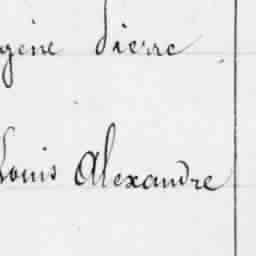 gène Pierre
Louis Alexandre